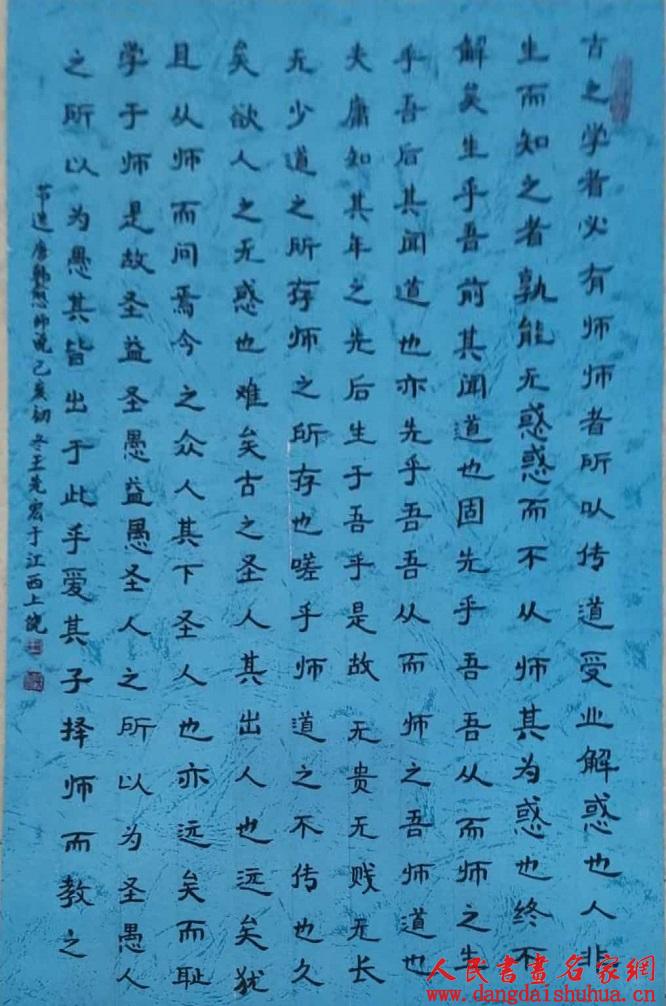 古之学者必有师师者所以传道受业解惑也人非
生而知之者孰能无惑惑而不从师其为惑也终不
解矣生乎吾前其闻道也固先乎吾吾从而师之生
乎吾后其闻道也亦先乎吾吾从而师之吾师道也
夫庸知其年之先后生于吾乎是故无贵无贱无长
无少道之所存师之所存也嗟乎师道之不传也久
矣欲人之无惑也难矣古之圣人其出人也远矣犹
且从师而问焉今之众人其下圣人也亦远矣而耻
学于师是故圣益圣愚益愚圣人之所以为圣愚人
之所以为愚其皆出于此乎爱其子择师而教之
节选唐韩愈师说己亥初冬王先宏于江西上饶
人民書畫名家網
www.dangdaishuhua.cn